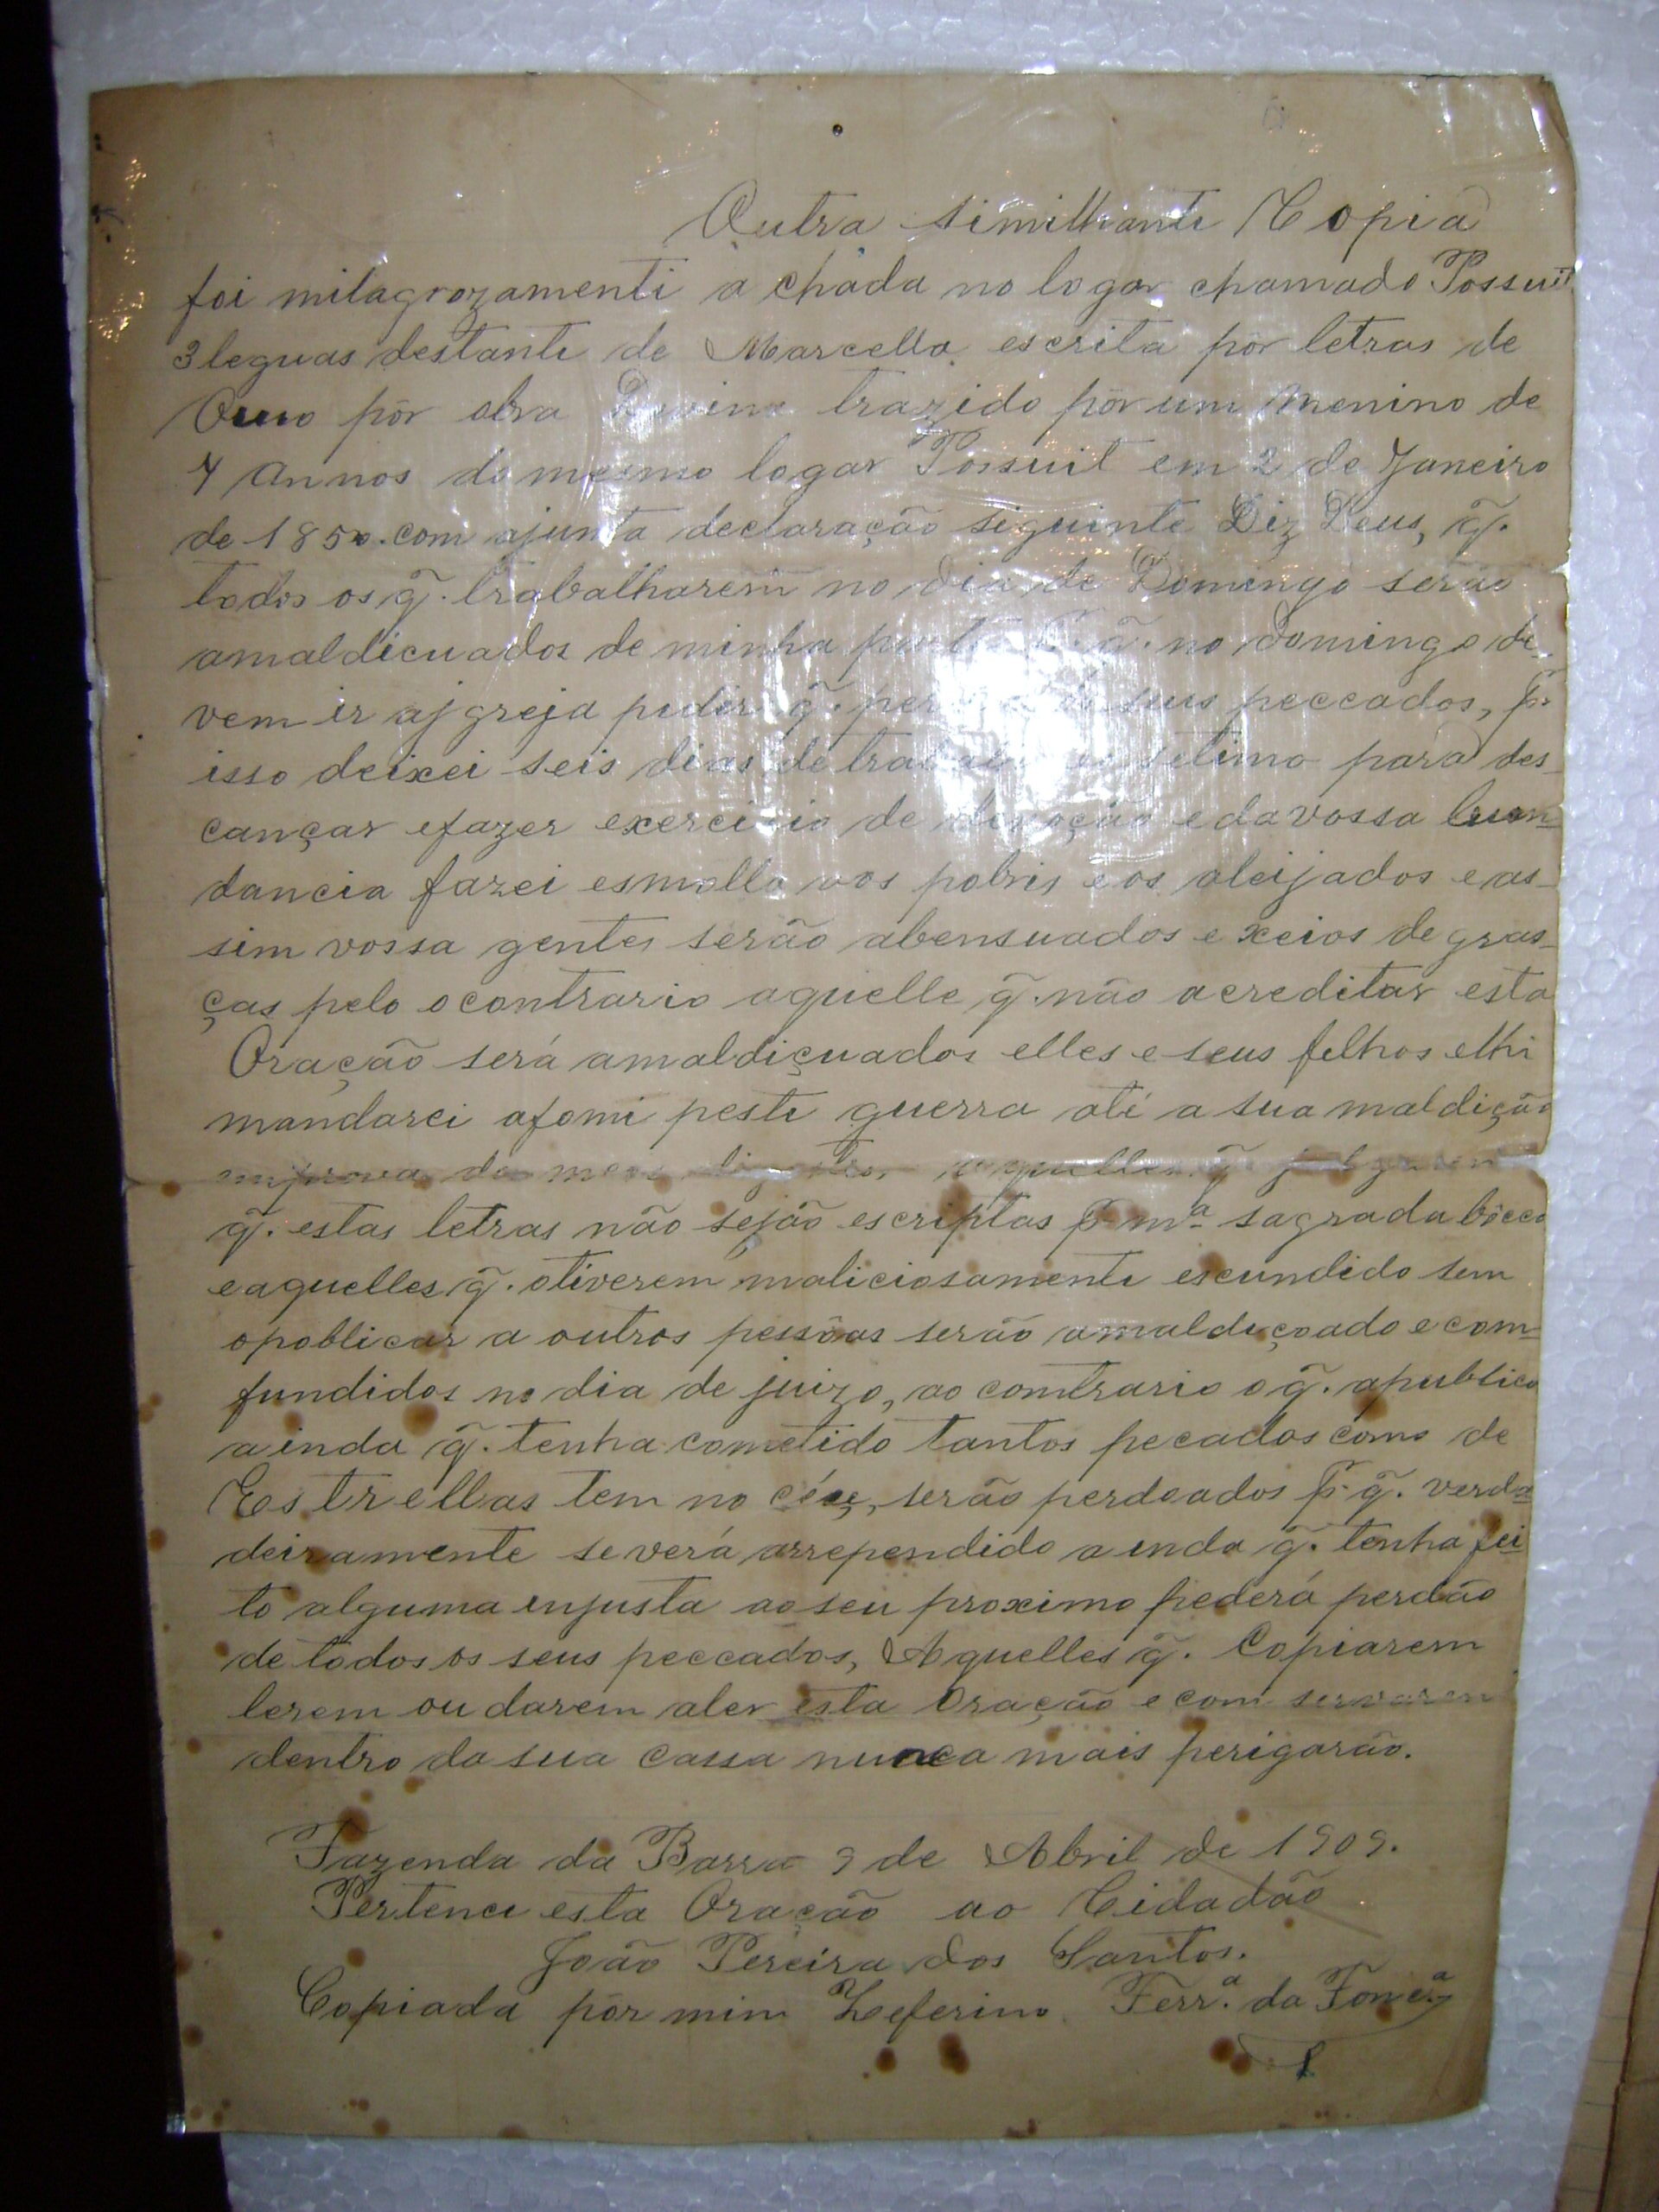 Outra similhante Copia
foi milagrozamenti a chada no logar chamado Possuit
3 leguas destanti de Marcella escrita pôr letras de
Ouro pôr obra Devina trazido pôr um Menino de
7 Annos do mesmo logar Possuit em 2 de Janeiro
de 1850. com ajunta declaração siguinte Diz Deus, q̃.
todos os q̃. trabalharem no dia de Domingo serão
amaldicuados de minha parte P. q̃. no domingo de_
vem ir aj greja pidir q̃. seus peccados, P.
isso deixei seis dias de trabalho setimo para des_
cançar efazer exercicio de devoção e da vossa bun_
dancia fazei esmolla aos pobris eos aleijados e as_
sim vossa gentes serão abensuados e xeios de gras_
ças pelo ocontrario aquelle q̃. não acreditar esta
Oração será amaldiçuados elles e seus felhos elhi
mandarei afomi pesti guerra ati a sua maldição
emprova do meu aquelles q̃
q̃. estas letras não sejão escriptas P. mª sagrada bôcca
eaquelles q̃. otiverem maliciosamenti escundido sem
opoblicar a outros pessôas serão amaldiçoado e com_
fundidos no dia de juizo, ao comtrario o q̃. apublica
ainda q̃. tenha cometido tantos pecados como de
Estrellas tem no céus, serão perdoados P. q̃. verda_
deiramente se verá arrependido a inda q̃. tenha fei_
to alguma enjusta ao seu proximo pederá perdão
de todos os seus peccados, Aquelles q̃. Copiarem
lerem ou darem aler esta Oração e com servarem
dentro da sua cassa nunca mais perigarão.
Fazenda da Barra 9 de Abril de 1909.
Pertenci esta Oração ao Cidadão
João Pereira dos Santos.
Copiada pôr mim Zeferino Ferr.ª da Fonc.ª